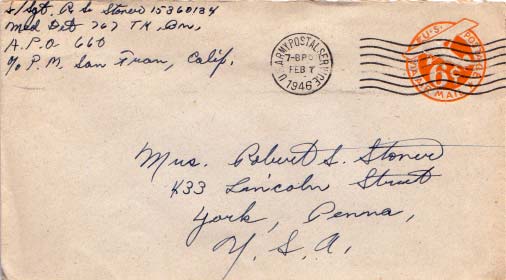 S/Sgt. R. S. Stoner 15360134
Med Det 767 TK. Bn.
A.P.O 660
c/o P.M. San Fran, Calif.
U.S. ARMY POSTAL SERVICE
FEB 7
1946
U.S. POSTAGE
6¢
VIA AIR MAIL
Mrs. Robert S. Stoner
433 Lincoln Street
York, Penna,
U.S.A.